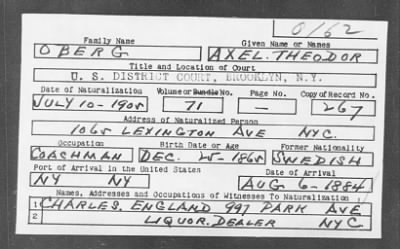 0/62
Family Name Given Name or Names
OBERG AXEL. THEODOR
Title and Location of Court
U. S. DISTRICT COURT, BROOKLYN, N.Y.
Date of Naturalization Volume or Bundle No. Page No. Copy of Record No.
JULY 10-1905 71 — 267
Address of Naturalized Person
1065 LEXINGTON AVE NYC.
Occupation Birth Date or Age Former Nationality
COACHMAN DEC. 25-1865 SWEDISH
Port of Arrival in the United States Date of Arrival
NY NY AUG 6-1884
Names, Addresses and Occupations of Witnesses To Naturalization
1 CHARLES. ENGLAND 997 PARK AVE
2 LIQUOR. DEALER NYC